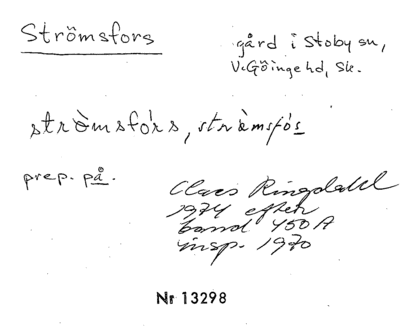 Strömsfors
gård i Stoby sn,
V. Göinge hd, Sk.
strò̀msfórs, stræ̀msfós
prep. på.
Claes Ringdahl
1974 efter
band 450 A
insp. 1970
Nr 13298